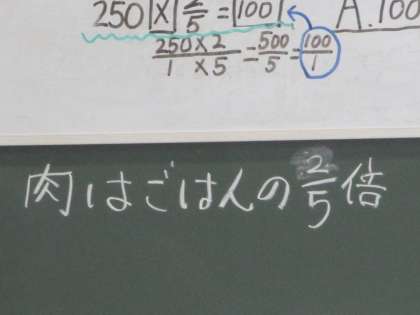 250 × 2/5 = 100 A.100
250×2/1×5 = 500/5 = 100/1
肉はごはんの2/5倍